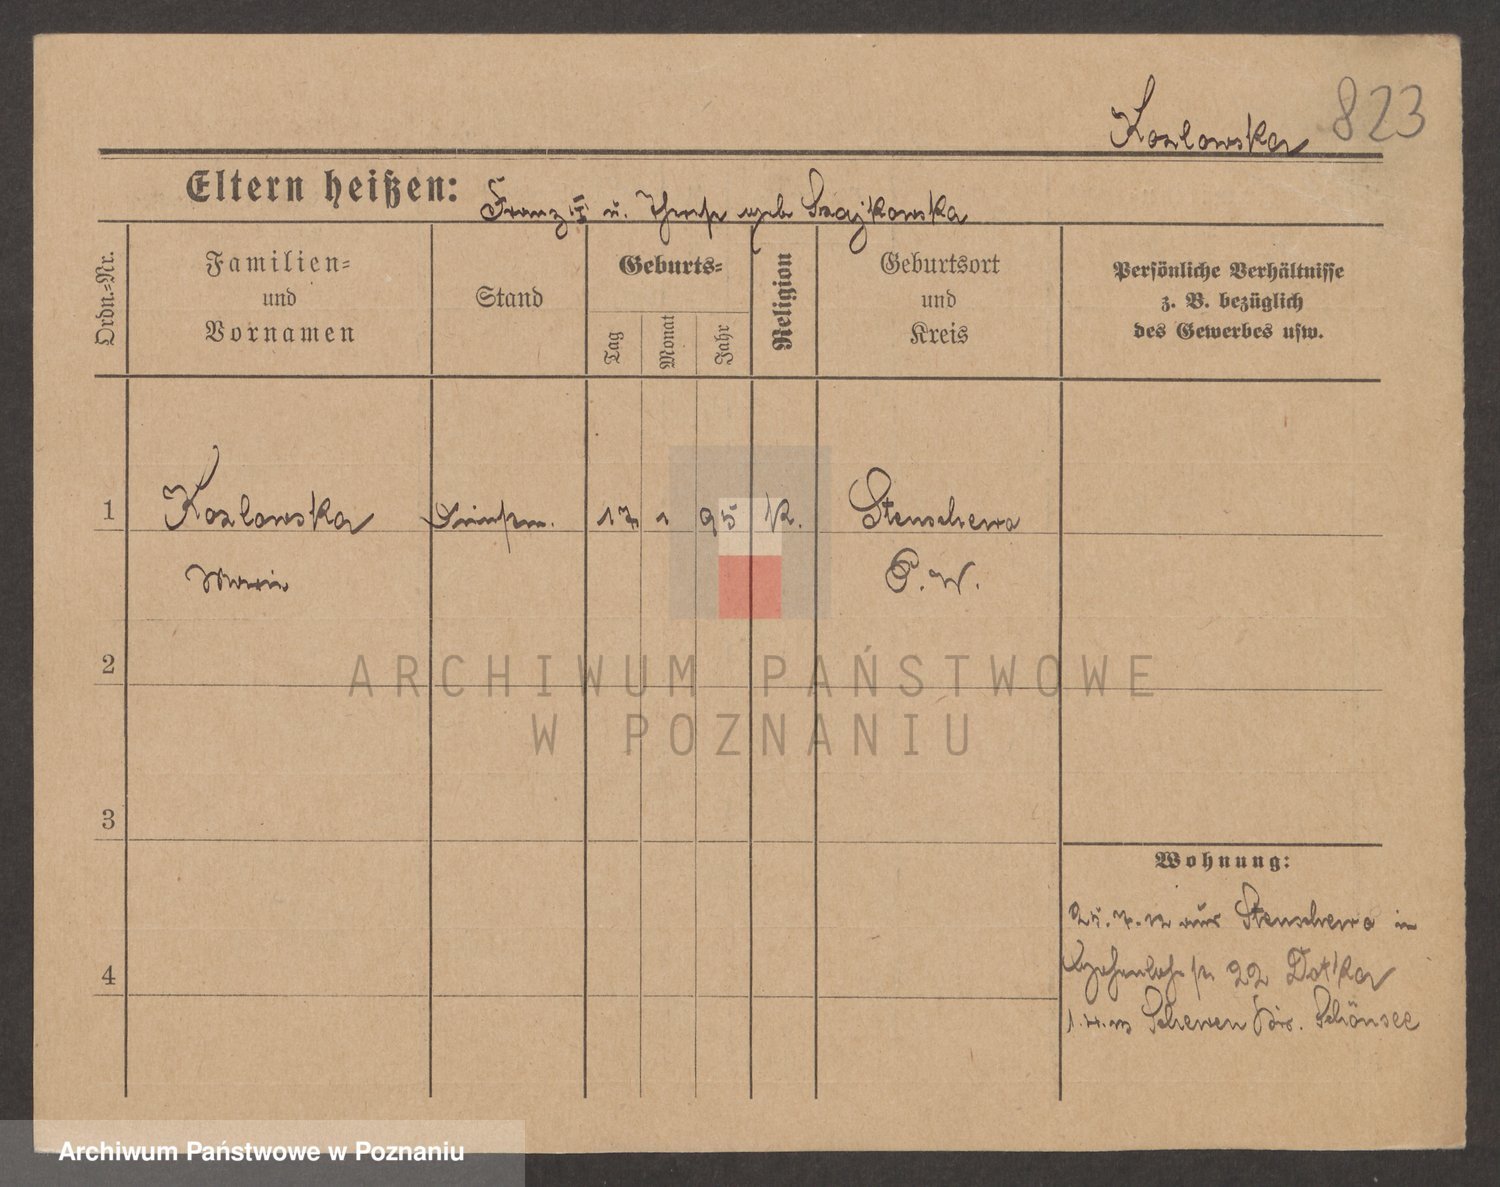 Kozlowska 823
Eltern heißen: Franz u. Therese geb. Szajkowska
Ordn.-Nr.
Familien- und Vornamen
Stand
Geburts-
Tag
Monat
Jahr
Religion
Geburtsort und Kreis
Persönliche Verhältnisse z. B. bezüglich des Gewerbes usw.
1 Kozlowska 17 1 95 K. Stenschewo
Marie P. W.
2
3
4
Wohnung:
25. 7. 12 aus Stenschewo in
22
Schönsee
ARCHIWUM PAŃSTWOWE
W POZNANIU
Archiwum Państwowe w Poznaniu